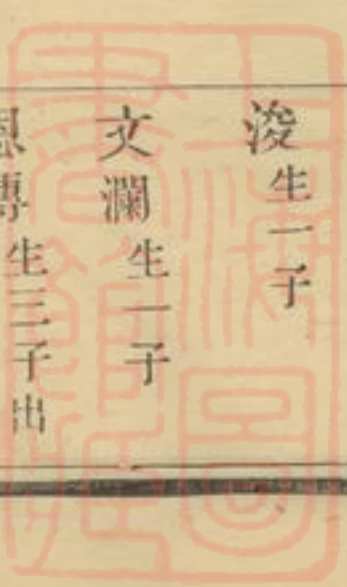 浚生一子
文瀾生一子
傳生三子出